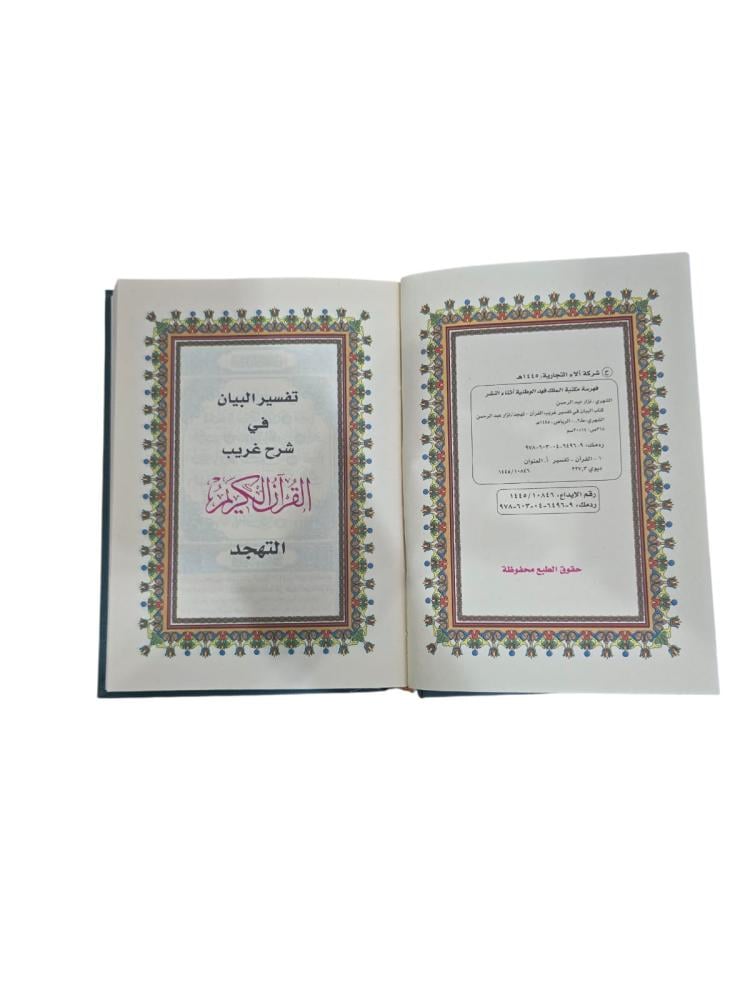 ح شركة آلاء التجارية، ١٤٤٥هـ
فهرسة مكتبة الملك فهد الوطنية أثناء النشر
الشهري، نزار عبد الرحمن
كتاب البيان في تفسير غريب القرآن - تهجد/نزار عبد الرحمن
الشهري -ط٢.. الرياض، ١٤٤٥هـ
ردمك: ٩-٦٤٩٦-٠٤-٦٠٣-٩٧٨
١- القرآن - تفسير أ. العنوان
ديوي ٢٢٧,٣ ١٤٤٥/١٠٨٤٦
رقم الإيداع: ١٤٤٥/١٠٨٤٦
ردمك: ٩-٦٤٩٦-٠٤-٦٠٣-٩٧٨
حقوق الطبع محفوظة
تفسير البيان
في
شرح غريب
القرآن الكريم
التهجد